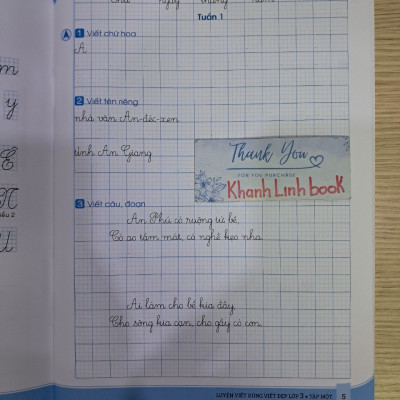 ngay
Tuần 1
A 1 Viết chữ hoa
A
2 Viết tên riêng
nhà văn An-đéc-xen
tỉnh An Giang
Thank You
FOR YOUR PURCHASE
Khanh Linh book
3 Viết câu, đoạn
An Phú có ruộng tứ bề,
Có ao tắm mát, có nghề kẹo nha.
Ai làm cho bể kia đầy,
Cho sông kia cạn, cho gầy cò con.
LUYỆN VIẾT ĐÚNG VIẾT ĐẸP LỚP 3 • TẬP MỘT 5